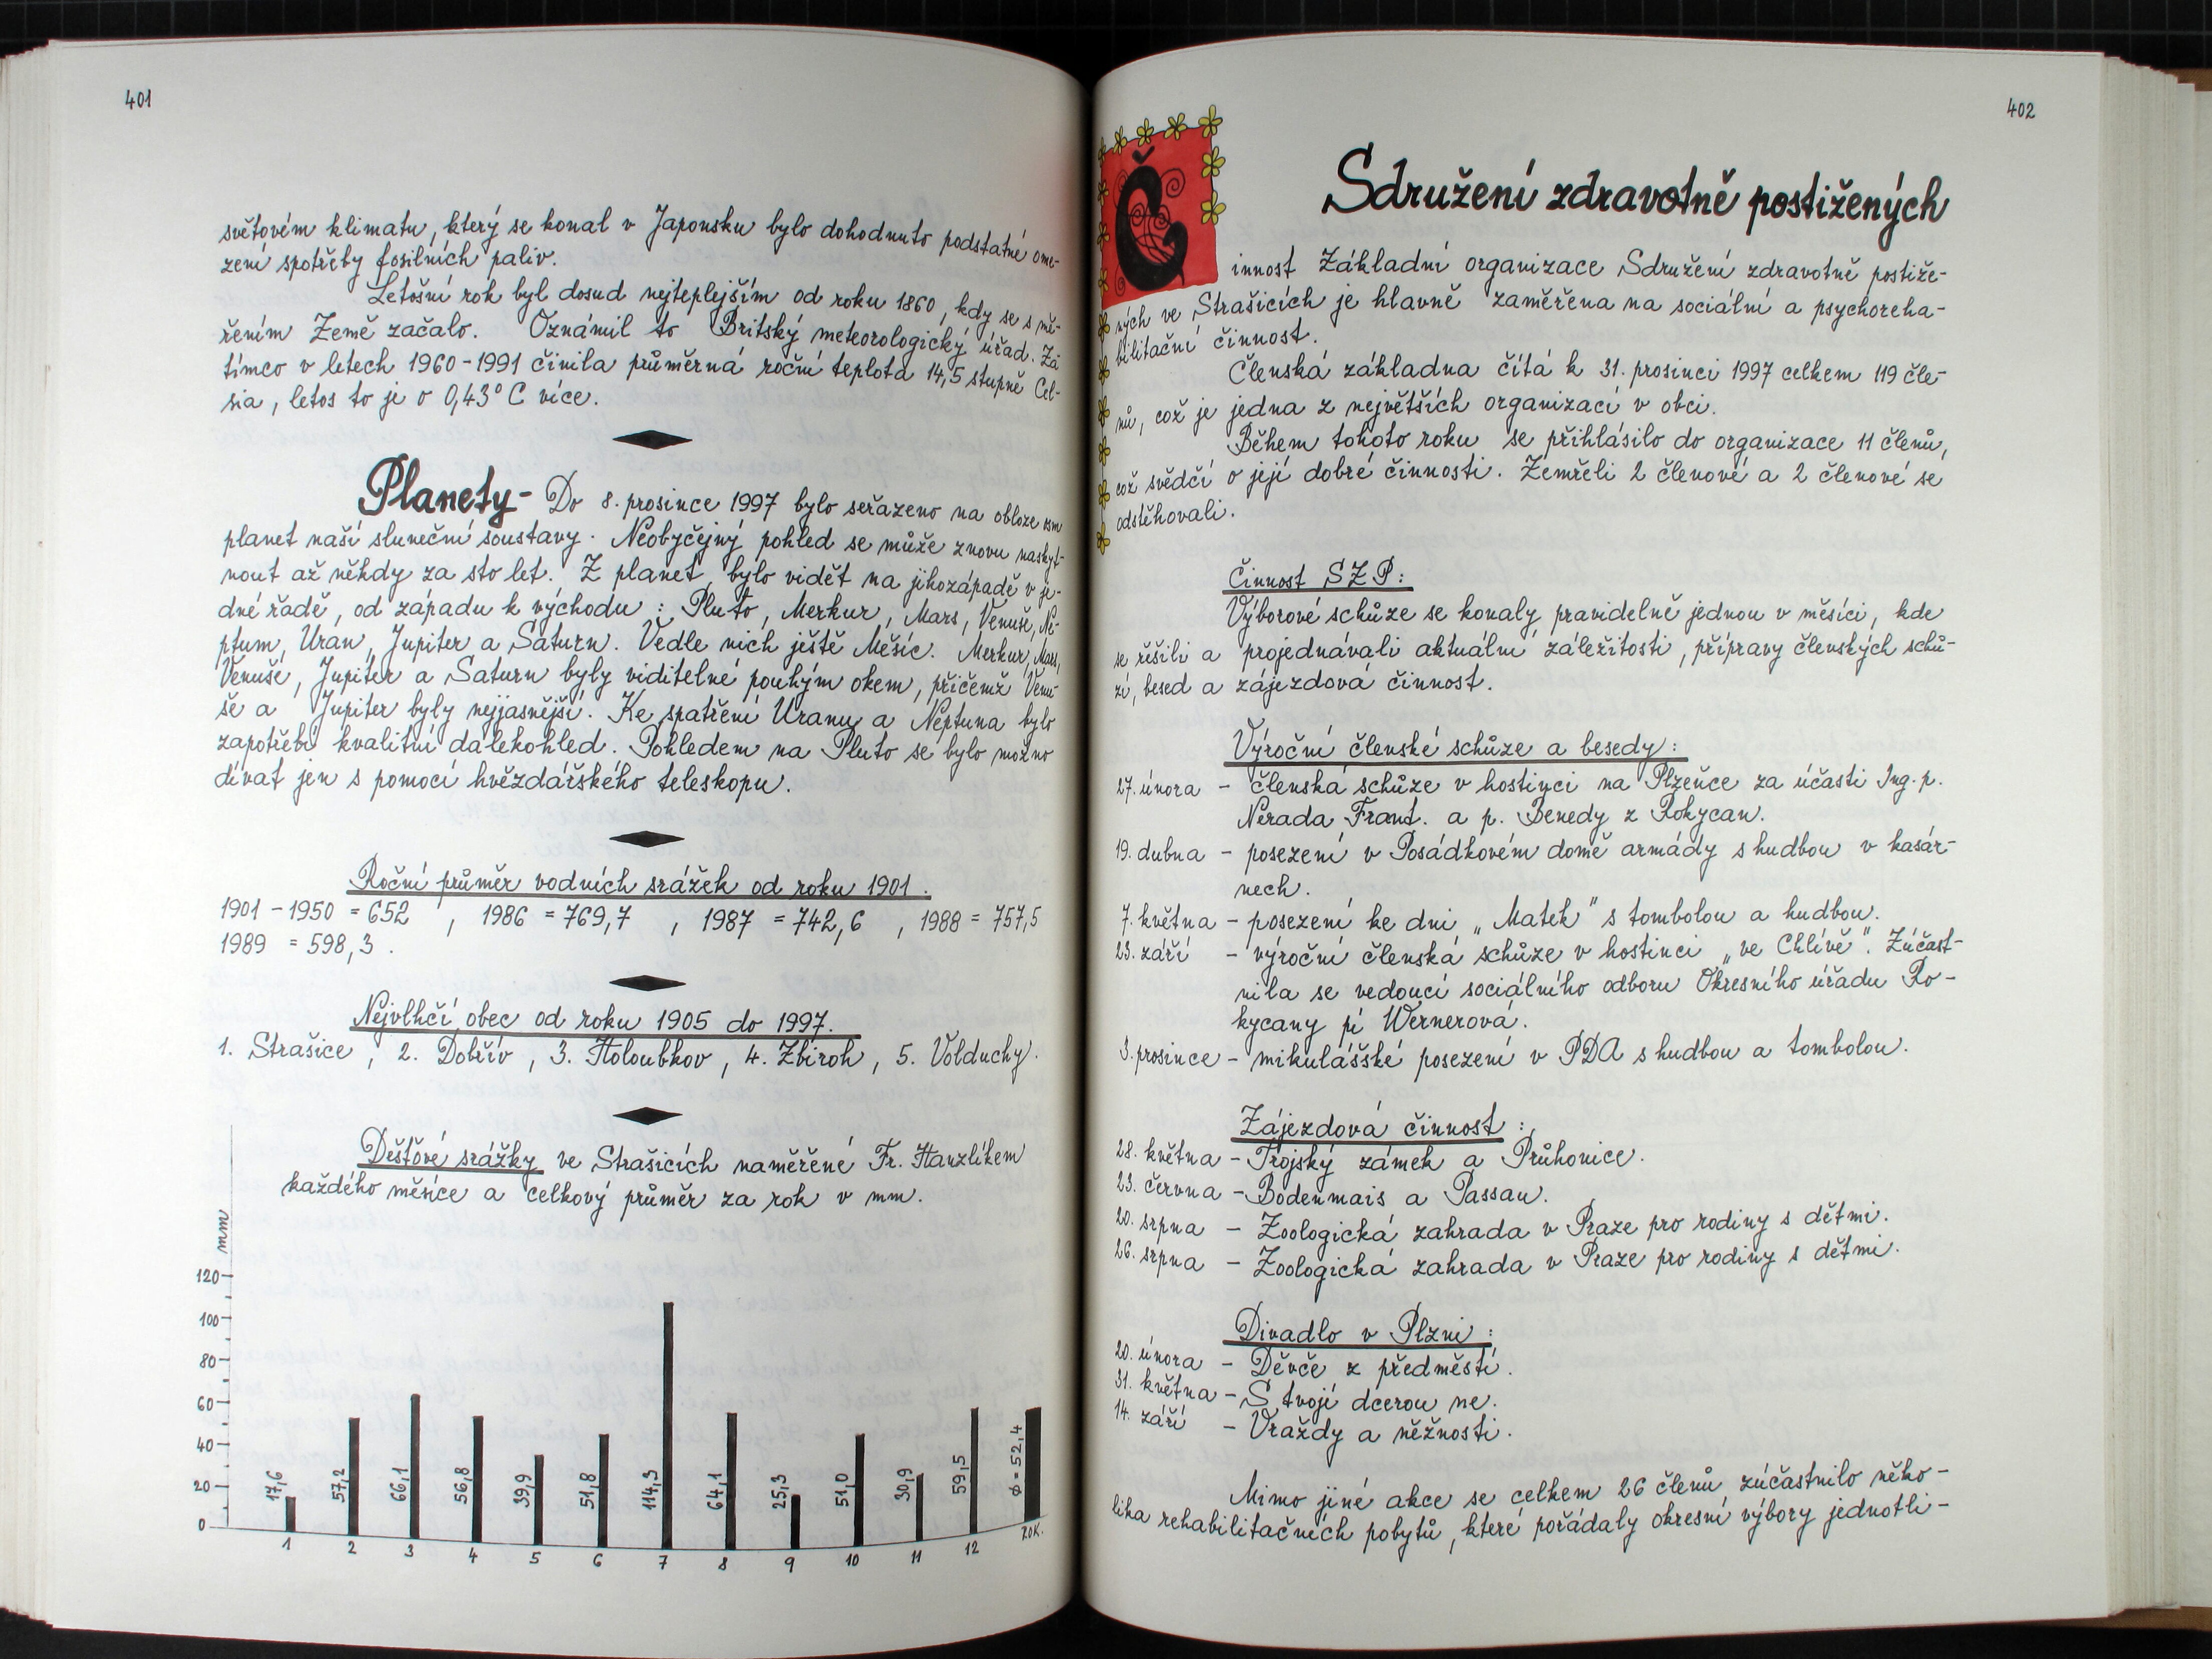 401
světovém klimatu, který se konal v Japonsku bylo dohodnuto podstatné ome-
zení spotřeby fosilních paliv.
Letošní rok byl dosud nejteplejším od roku 1860, kdy se s mě-
řením Země začalo. Oznámil to Britský meteorologický úřad. Za
tímco v letech 1960-1991 činila průměrná roční teplota 14,5 stupně Cel-
sia, letos to je o 0,43° C více.
Planety - Do 8. prosince 1997 bylo seřazeno na obloze osm
planet naší sluneční soustavy. Neobyčejný pohled se může znovu naskyt-
nout až někdy za sto let. Z planet bylo vidět na jihozápadě v je-
dné řadě, od západu k východu: Pluto, Merkur, Mars, Venuše, Ne-
ptum, Uran, Jupiter a Saturn. Vedle nich ještě Měsíc. Merkur, Mars,
Venuše, Jupiter a Saturn byly viditelné pouhým okem, přičemž Venu-
še a Jupiter byly nejjasnější. Ke spatření Uranu a Neptuna bylo
zapotřebí kvalitní dalekohled. Pohledem na Pluto se bylo možno
dívat jen s pomocí hvězdářského teleskopu.
Roční průměr vodních srážek od roku 1901.
1901-1950 = 652 , 1986 = 769,7 , 1987 = 742,6 , 1988 = 757,5
1989 = 598,3.
Nejvlhčí obec od roku 1905 do 1997.
1. Strašice, 2. Dobřív, 3. Holoubkov, 4. Zbiroh, 5. Volduchy.
Dešťové srážky ve Strašicích naměřené Fr. Hanzlíkem
každého měsíce a celkový průměr za rok v mm.
mm
120
100
80
60
40
20
0
17,6
57,2
66,1
56,8
39,9
51,8
114,3
64,1
25,3
51,0
30,9
59,5
ø = 52,4
1 2 3 4 5 6 7 8 9 10 11 12 ROK.
402
Sdružení zdravotně postižených
Činnost Základní organizace Sdružení zdravotně postiže-
ných ve Strašicích je hlavně zaměřena na sociální a psychoreha-
bilitační činnost.
Členská základna čítá k 31. prosinci 1997 celkem 119 čle-
nů, což je jedna z největších organizací v obci.
Během tohoto roku se přihlásilo do organizace 11 členů,
což svědčí o její dobré činnosti. Zemřeli 2 členové a 2 členové se
odstěhovali.
Činnost SZP:
Výborové schůze se konaly pravidelně jednou v měsíci, kde
se řešili a projednávali aktuální záležitosti, přípravy členských schů-
zí, besed a zájezdová činnost.
Výroční členské schůze a besedy:
27. února - členská schůze v hostinci na Plzeňce za účasti Ing. p.
Nerada Frant. a p. Benedy z Rokycan.
19. dubna - posezení v Posádkovém domě armády s hudbou v kasár-
nech.
7. května - posezení ke dni „Matek" s tombolou a hudbou.
23. září - výroční členská schůze v hostinci „ve Chlívě". Zúčast-
nila se vedoucí sociálního odboru Okresního úřadu Ro-
kycany pí Wernerová.
3. prosince - mikulášské posezení v PDA s hudbou a tombolou.
Zájezdová činnost:
28. května - Trojský zámek a Průhonice.
23. června - Bodenmais a Passau.
20. srpna - Zoologická zahrada v Praze pro rodiny s dětmi.
26. srpna - Zoologická zahrada v Praze pro rodiny s dětmi.
Divadlo v Plzni:
20. února - Děvče z předměstí.
31. května - S tvojí dcerou ne.
14. září - Vraždy a něžnosti.
Mimo jiné akce se celkem 26 členů zúčastnilo něko-
lika rehabilitačních pobytů, které pořádaly okresní výbory jednotli-